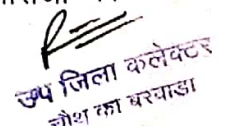 उप जिला कलेक्टर
चौथ का बरवाडा